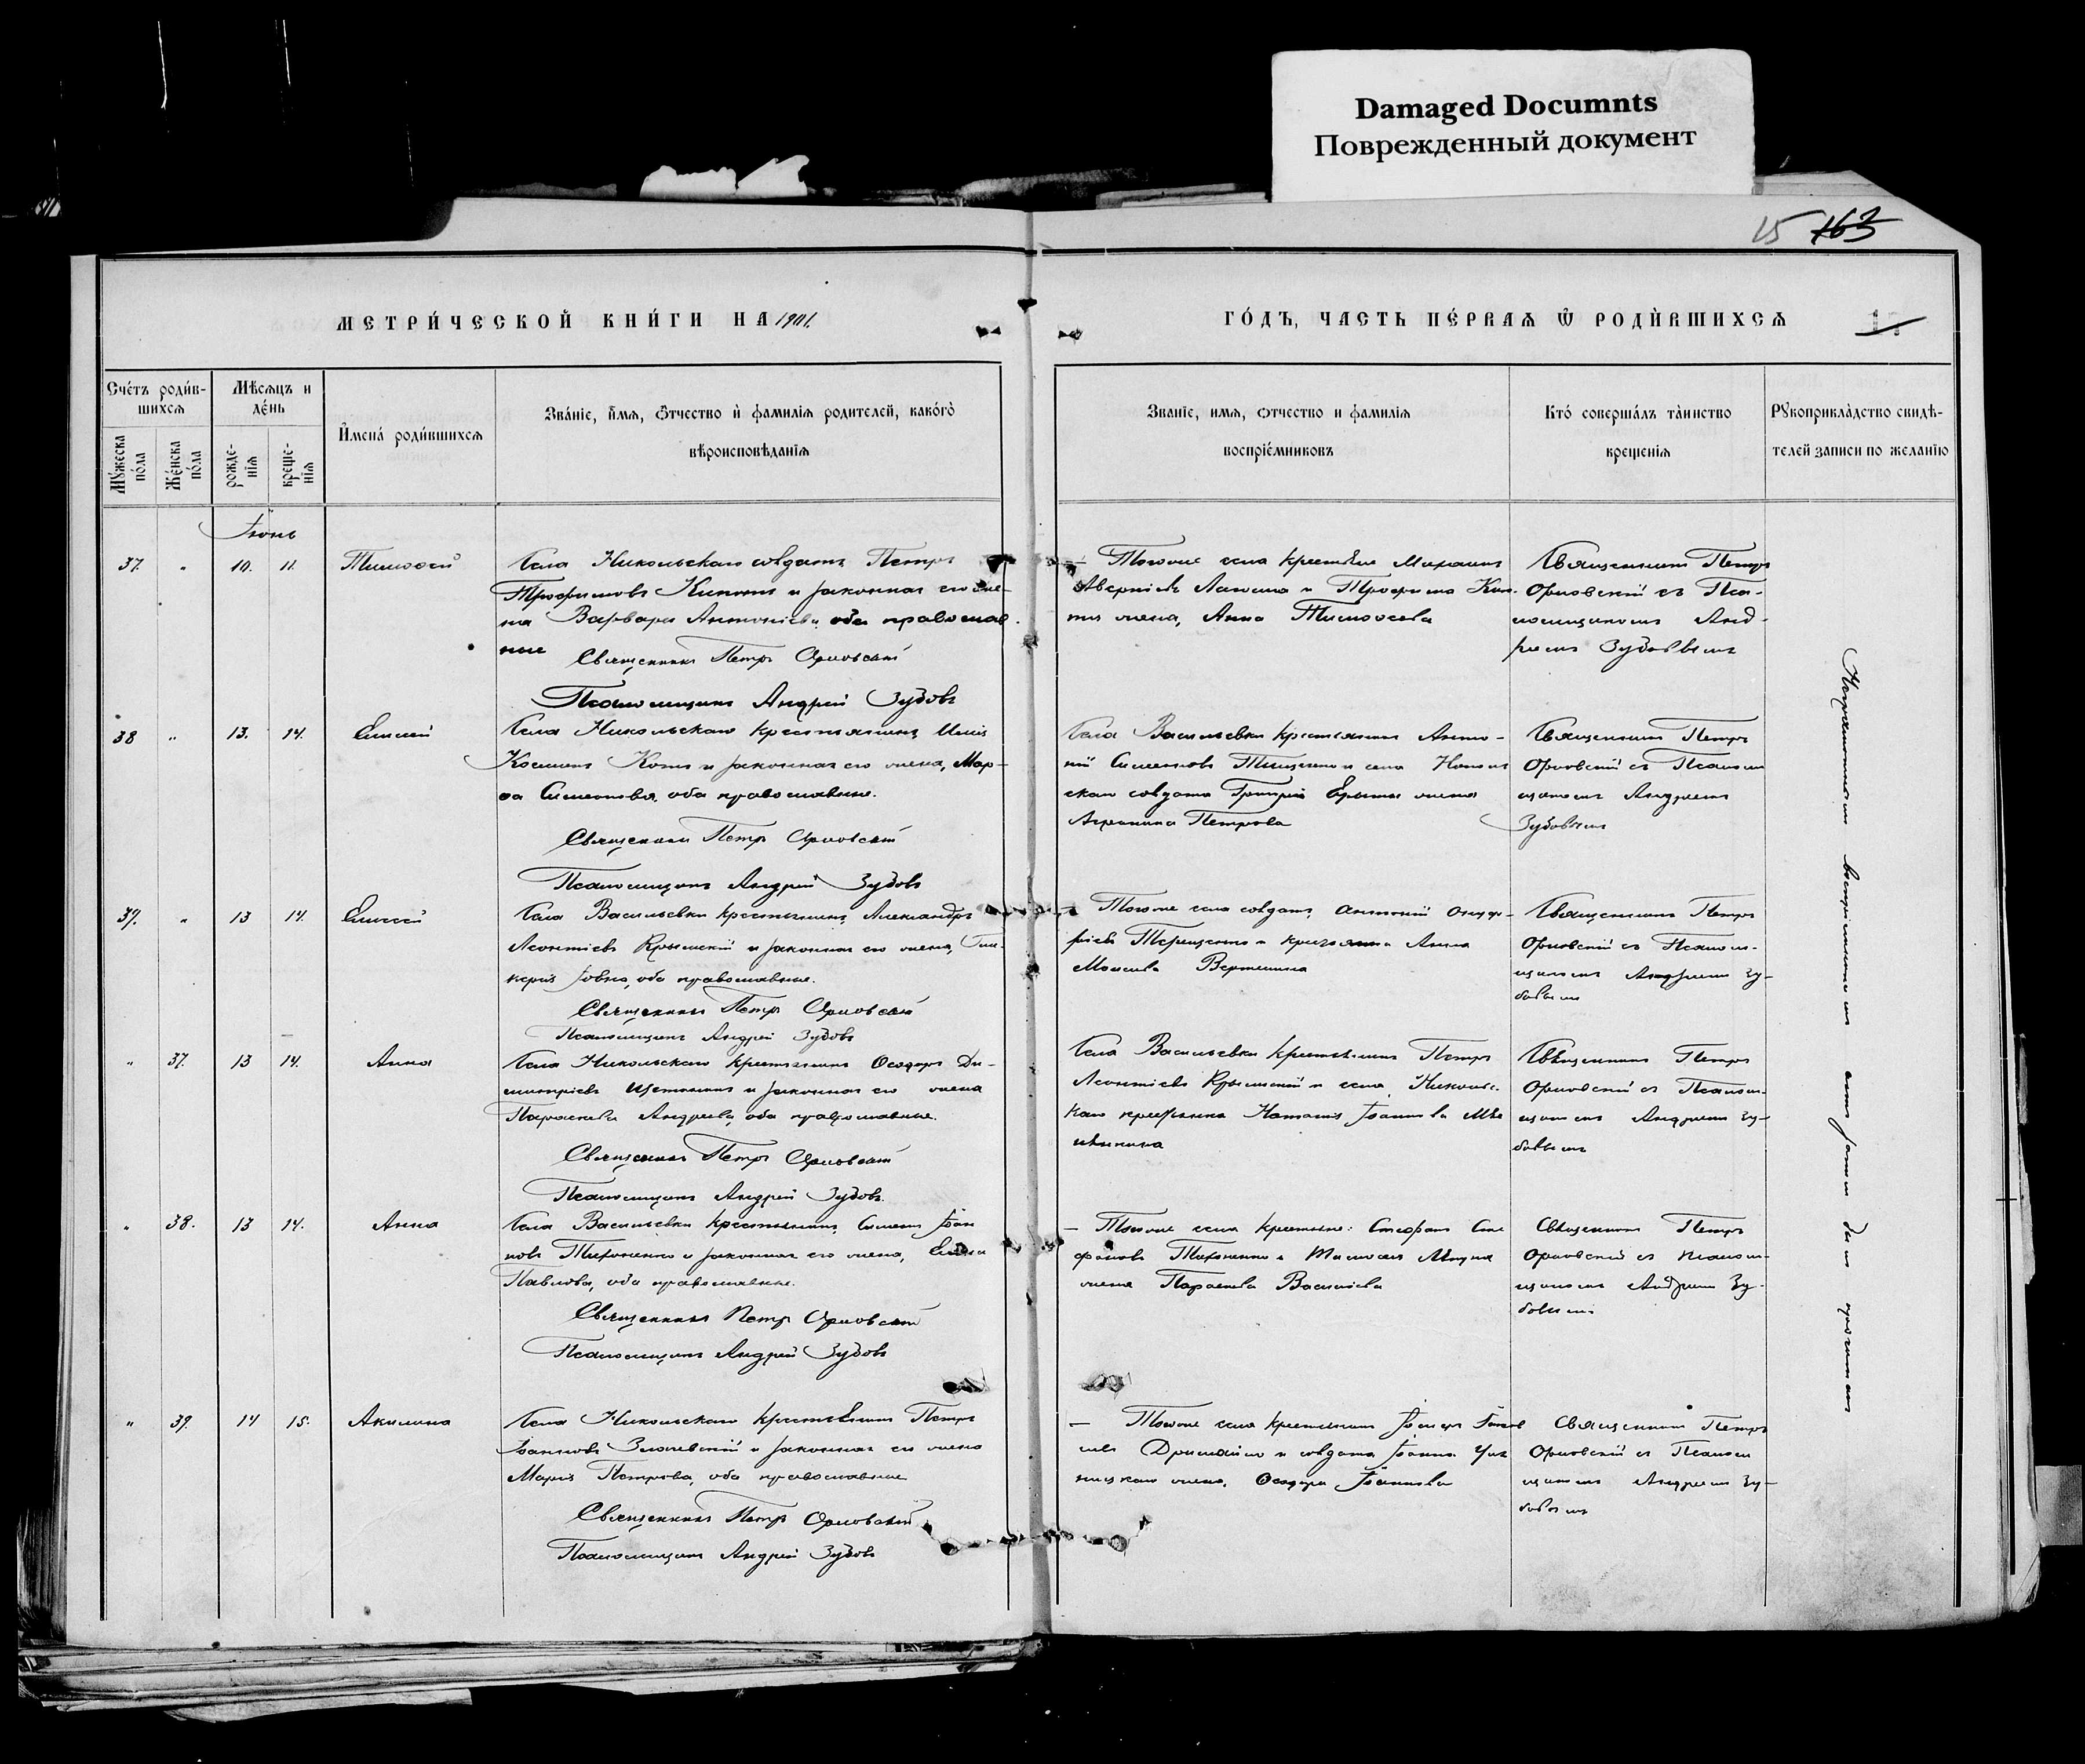 Damaged Documnts
Поврежденный документ
15 163
МЕТРИ́ЧЕСКОЙ КНИ́ГИ НА 1901.
ГО́ДЪ, ЧАСТЬ ПЕ́РВАѦ Ѡ РОДИ́ВШИХСѦ
17
Сче́тъ роди́в-
шихсѧ
Мѣсѧцъ и
де́нь
Мꙋ́жеска по́ла
Же́нска по́ла
рожде-
нїѧ
креще-
нїѧ
И҆мена̀ роди́вшихсѧ
Зва́нїе, и҆́мѧ, ѻ҆́тчество и҆ фами́лїѧ роди́телей, како́гѡ
вѣроисповѣ́данїѧ
Званїе, имѧ, отчество и фамилїѧ
воспрїе́мниковъ
Кто́ соверша́лъ та́инство
крещенїѧ
Рꙋкоприкла́дство свидѣ-
телей записи по желанїю
Іюнь
37. " 10. 11. Тимоѳей
Села Никольскаго солдатъ Петръ
Трофимовъ и законная его же-
на Варвара Антоніева, оба православ-
ные
Священникъ Петръ Орловскій
Псаломщикъ Андрей Зубовъ
Тогоже села крестьяне Михаилъ
Аверкіевъ и Трофима
жена, Анна Тимоѳеева
Священникъ Петръ
Орловскій съ Пса-
ломщикомъ Анд-
реемъ Зубовымъ
38 " 13. 14. Елисей
Села Никольскаго крестьянинъ
Косминъ и законная его жена, Мар-
ѳа Симеонова, оба православные.
Священникъ Петръ Орловскій
Псаломщикъ Андрей Зубовъ
Села Васильевки крестьянинъ Анто-
ній Симеоновъ и села
скаго солдата Григорія жена
Агрипина Петрова
Священникъ Петръ
Орловскій съ Псалом
щикомъ Андреемъ
Зубовымъ
39. " 13 14. Елисей
Села Васильевки крестьянинъ Александръ
Леонтіевъ Крымскій и законная его жена, Гли-
керія Іовна, оба православные.
Священникъ Петръ Орловскій
Псаломщикъ Андрей Зубовъ
Тогоже села солдатъ Антоній Онуф-
ріевъ Терещенко и крестьянка Анна
Моисеева
Священникъ Петръ
Орловскій съ Псалом-
щикомъ Андреемъ Зу-
бовымъ
" 37. 13 14. Анна
Села Никольскаго крестьянинъ Ѳеодоръ Ди-
митріевъ и законная его жена
Параскева Андреева, оба православные.
Священникъ Петръ Орловскій
Псаломщикъ Андрей Зубовъ.
Села Васильевки крестьянинъ Петръ
Леонтіевъ Крымскій и села Николь-
скаго крестьянка Наталія Іоаннова
Священникъ Петръ
Орловскій съ Псалом-
щикомъ Андреемъ Зу-
бовымъ
" 38. 13 14. Анна
Села Васильевки крестьянинъ Симеонъ Іоан
новъ Тихоненко и законная его жена, Елена
Павлова, оба православные.
Священникъ Петръ Орловскій
Псаломщикъ Андрей Зубовъ
Тогоже села крестьяне: Стефанъ Сте
фановъ Тихоненко и
жена Параскева Васильева
Священникъ Петръ
Орловскій съ Псалом-
щикомъ Андреемъ Зу-
бовымъ
" 39. 14 15. Акилина
Села Никольскаго крестьянинъ Петръ
Іоанновъ и законная его жена
Марія Петрова, оба православные
Священникъ Петръ Орловскій
Псаломщикъ Андрей Зубовъ
Тогоже села крестьянинъ
и солдата Іоанна
жена, Ѳеодора Іоаннова
Священникъ Петръ
Орловскій съ Псалом
щикомъ Андреемъ Зу-
бовымъ